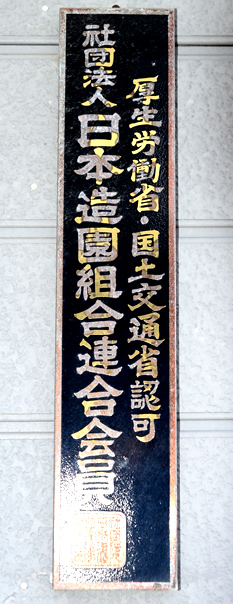 厚生労働省・国土交通省認可
社団法人日本造園組合連合会会員